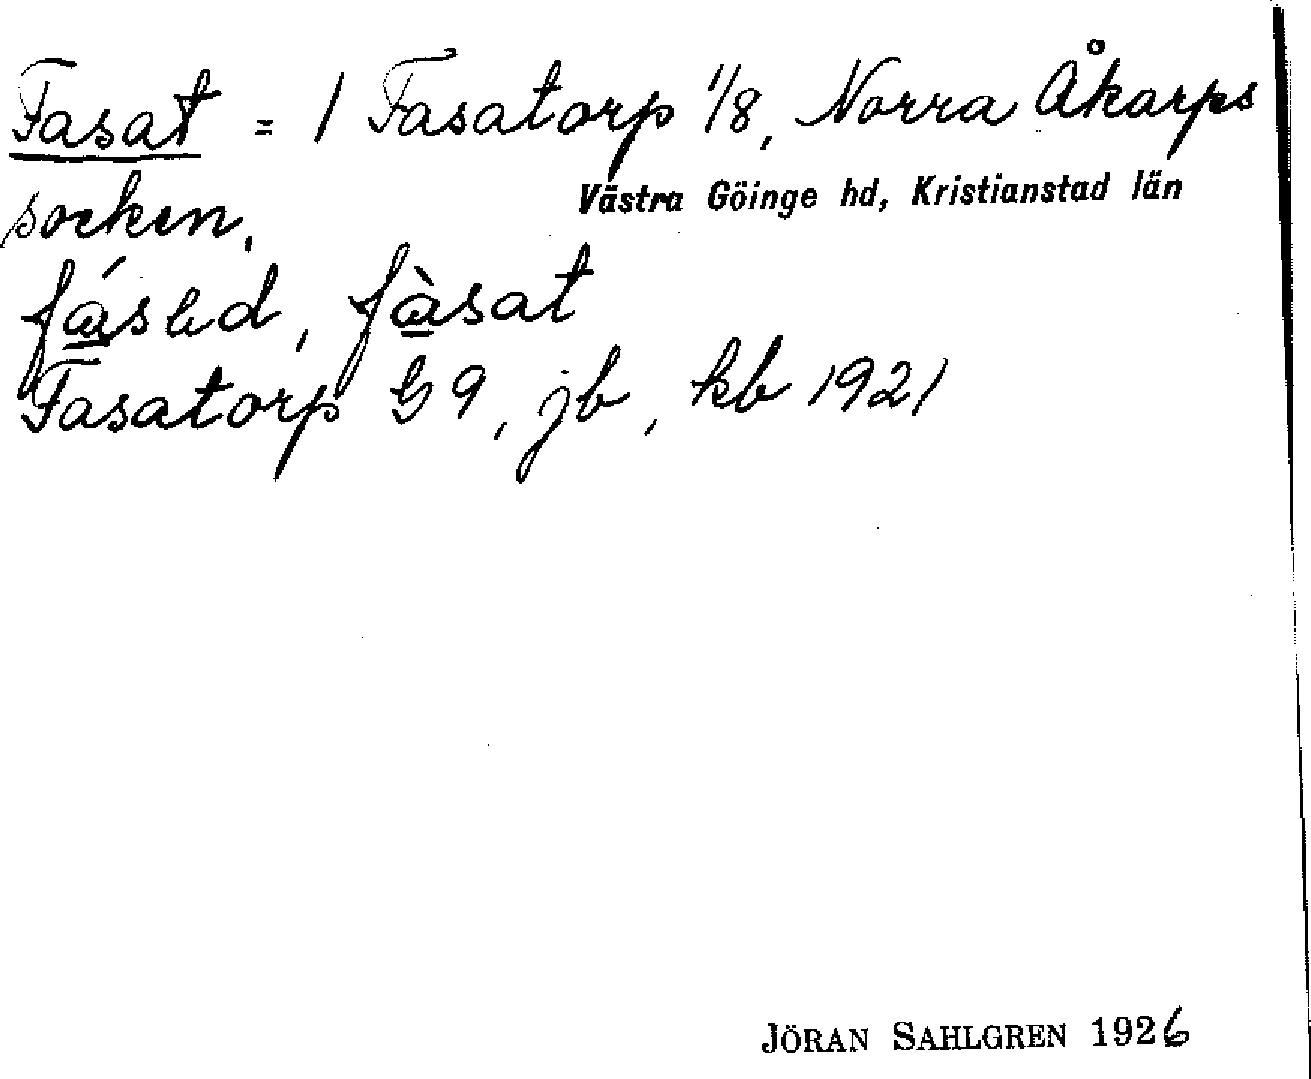 Fasat = 1 Fasatorp 1/8, Norra Åkarps
socken.
Västra Göinge hd, Kristianstad län
fàsat
Fasatorp G 9, jb, kb 1921
JÖRAN SAHLGREN 1926